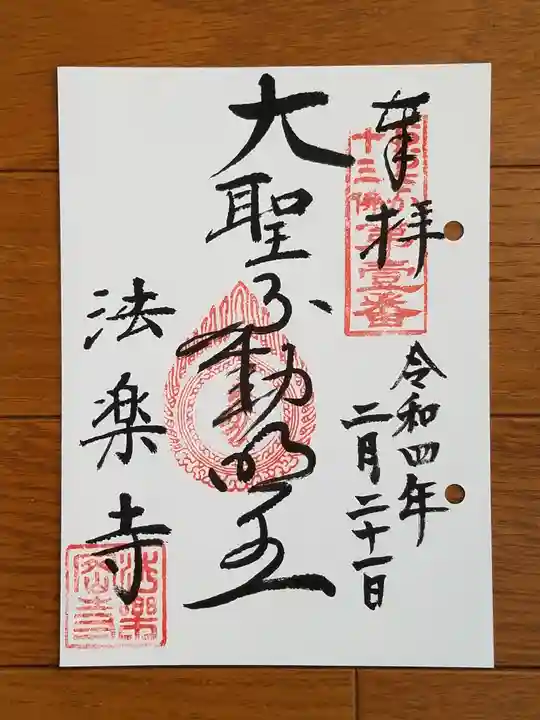 奉拝
十三佛
第壹番
令和四年
二月二十一日
大聖不動明王
法楽寺